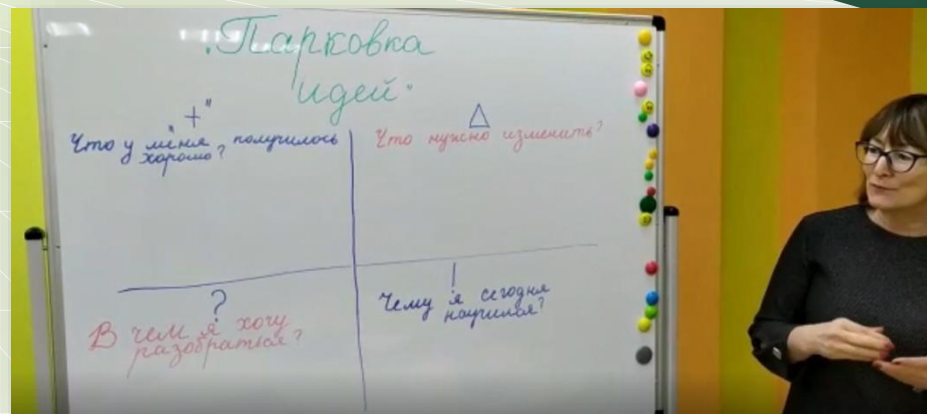 „Парковка
идей"
"+"
Что у меня получилось
хорошо?
△
Что нужно изменить?
?
В чем я хочу
разобраться?
!
Чему я сегодня
научился?